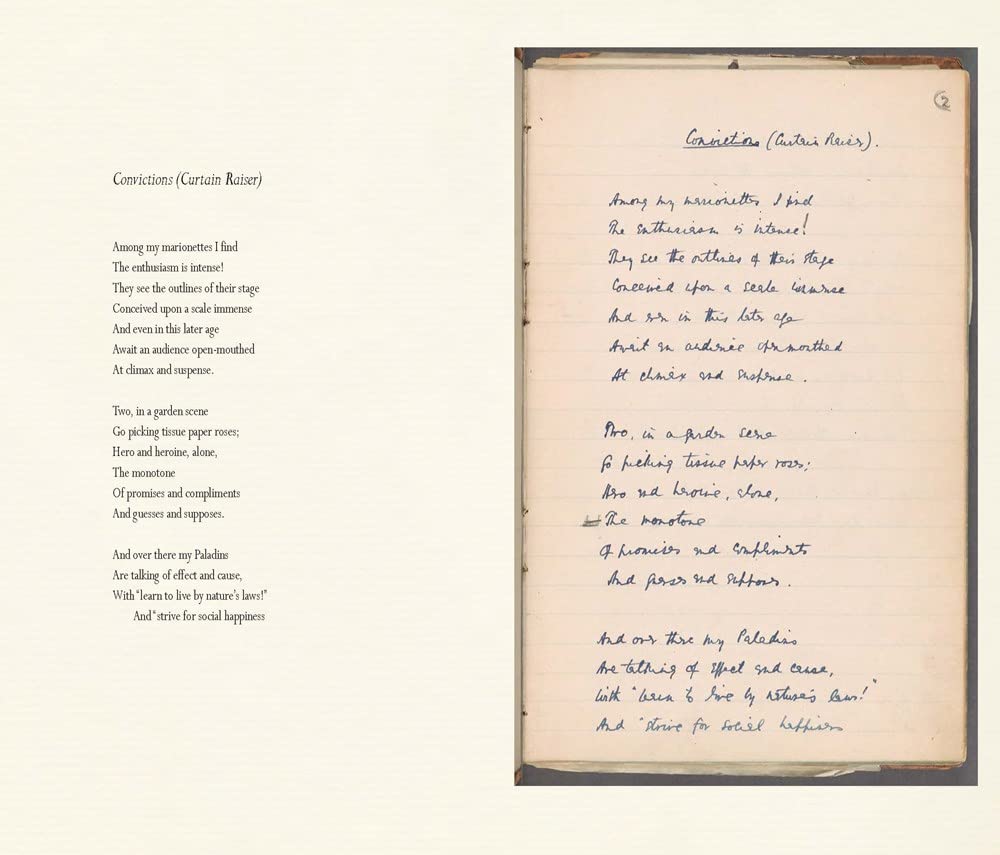 Convictions (Curtain Raiser)
Among my marionettes I find
The enthusiasm is intense!
They see the outlines of their stage
Conceived upon a scale immense
And even in this later age
Await an audience open-mouthed
At climax and suspense.
Two, in a garden scene
Go picking tissue paper roses;
Hero and heroine, alone,
The monotone
Of promises and compliments
And guesses and supposes.
And over there my Paladins
Are talking of effect and cause,
With “learn to live by nature’s laws!”
And “strive for social happiness
2
Convictions (Curtain Raiser).
Among my marionettes I find
The enthusiasm is intense!
They see the outlines of their stage
Conceived upon a scale immense
And even in this later age
Await an audience open mouthed
At climax and suspense.
Two, in a garden scene
Go picking tissue paper roses;
Hero and heroine, alone,
The monotone
Of promises and compliments
And guesses and supposes.
And over there my Paladins
Are talking of effect and cause,
With "learn to live by nature's laws!"
And "strive for social happiness